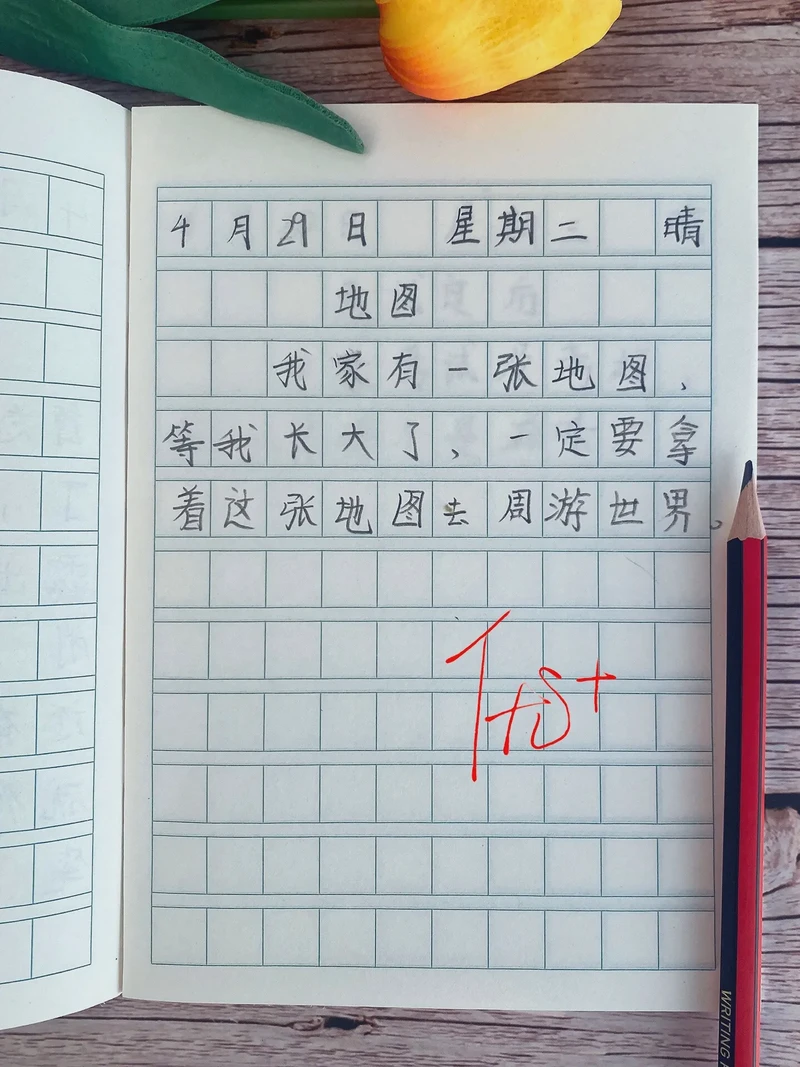 4月29日 星期二 晴
地图
我家有一张地图，
等我长大了，一定要拿
着这张地图去周游世界。
WRITING